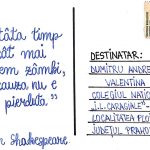 tâta timp
cât mai
em zâmbi,
cauza nu e
pierduta."
Shakespeare
DESTINATAR:
DUMITRU ANDRE
VALENTINA
COLEGIUL NAȚIO
"I.L. CARAGIALE"-
LOCALITATEA PLOI
JUDEȚUL PRAHO